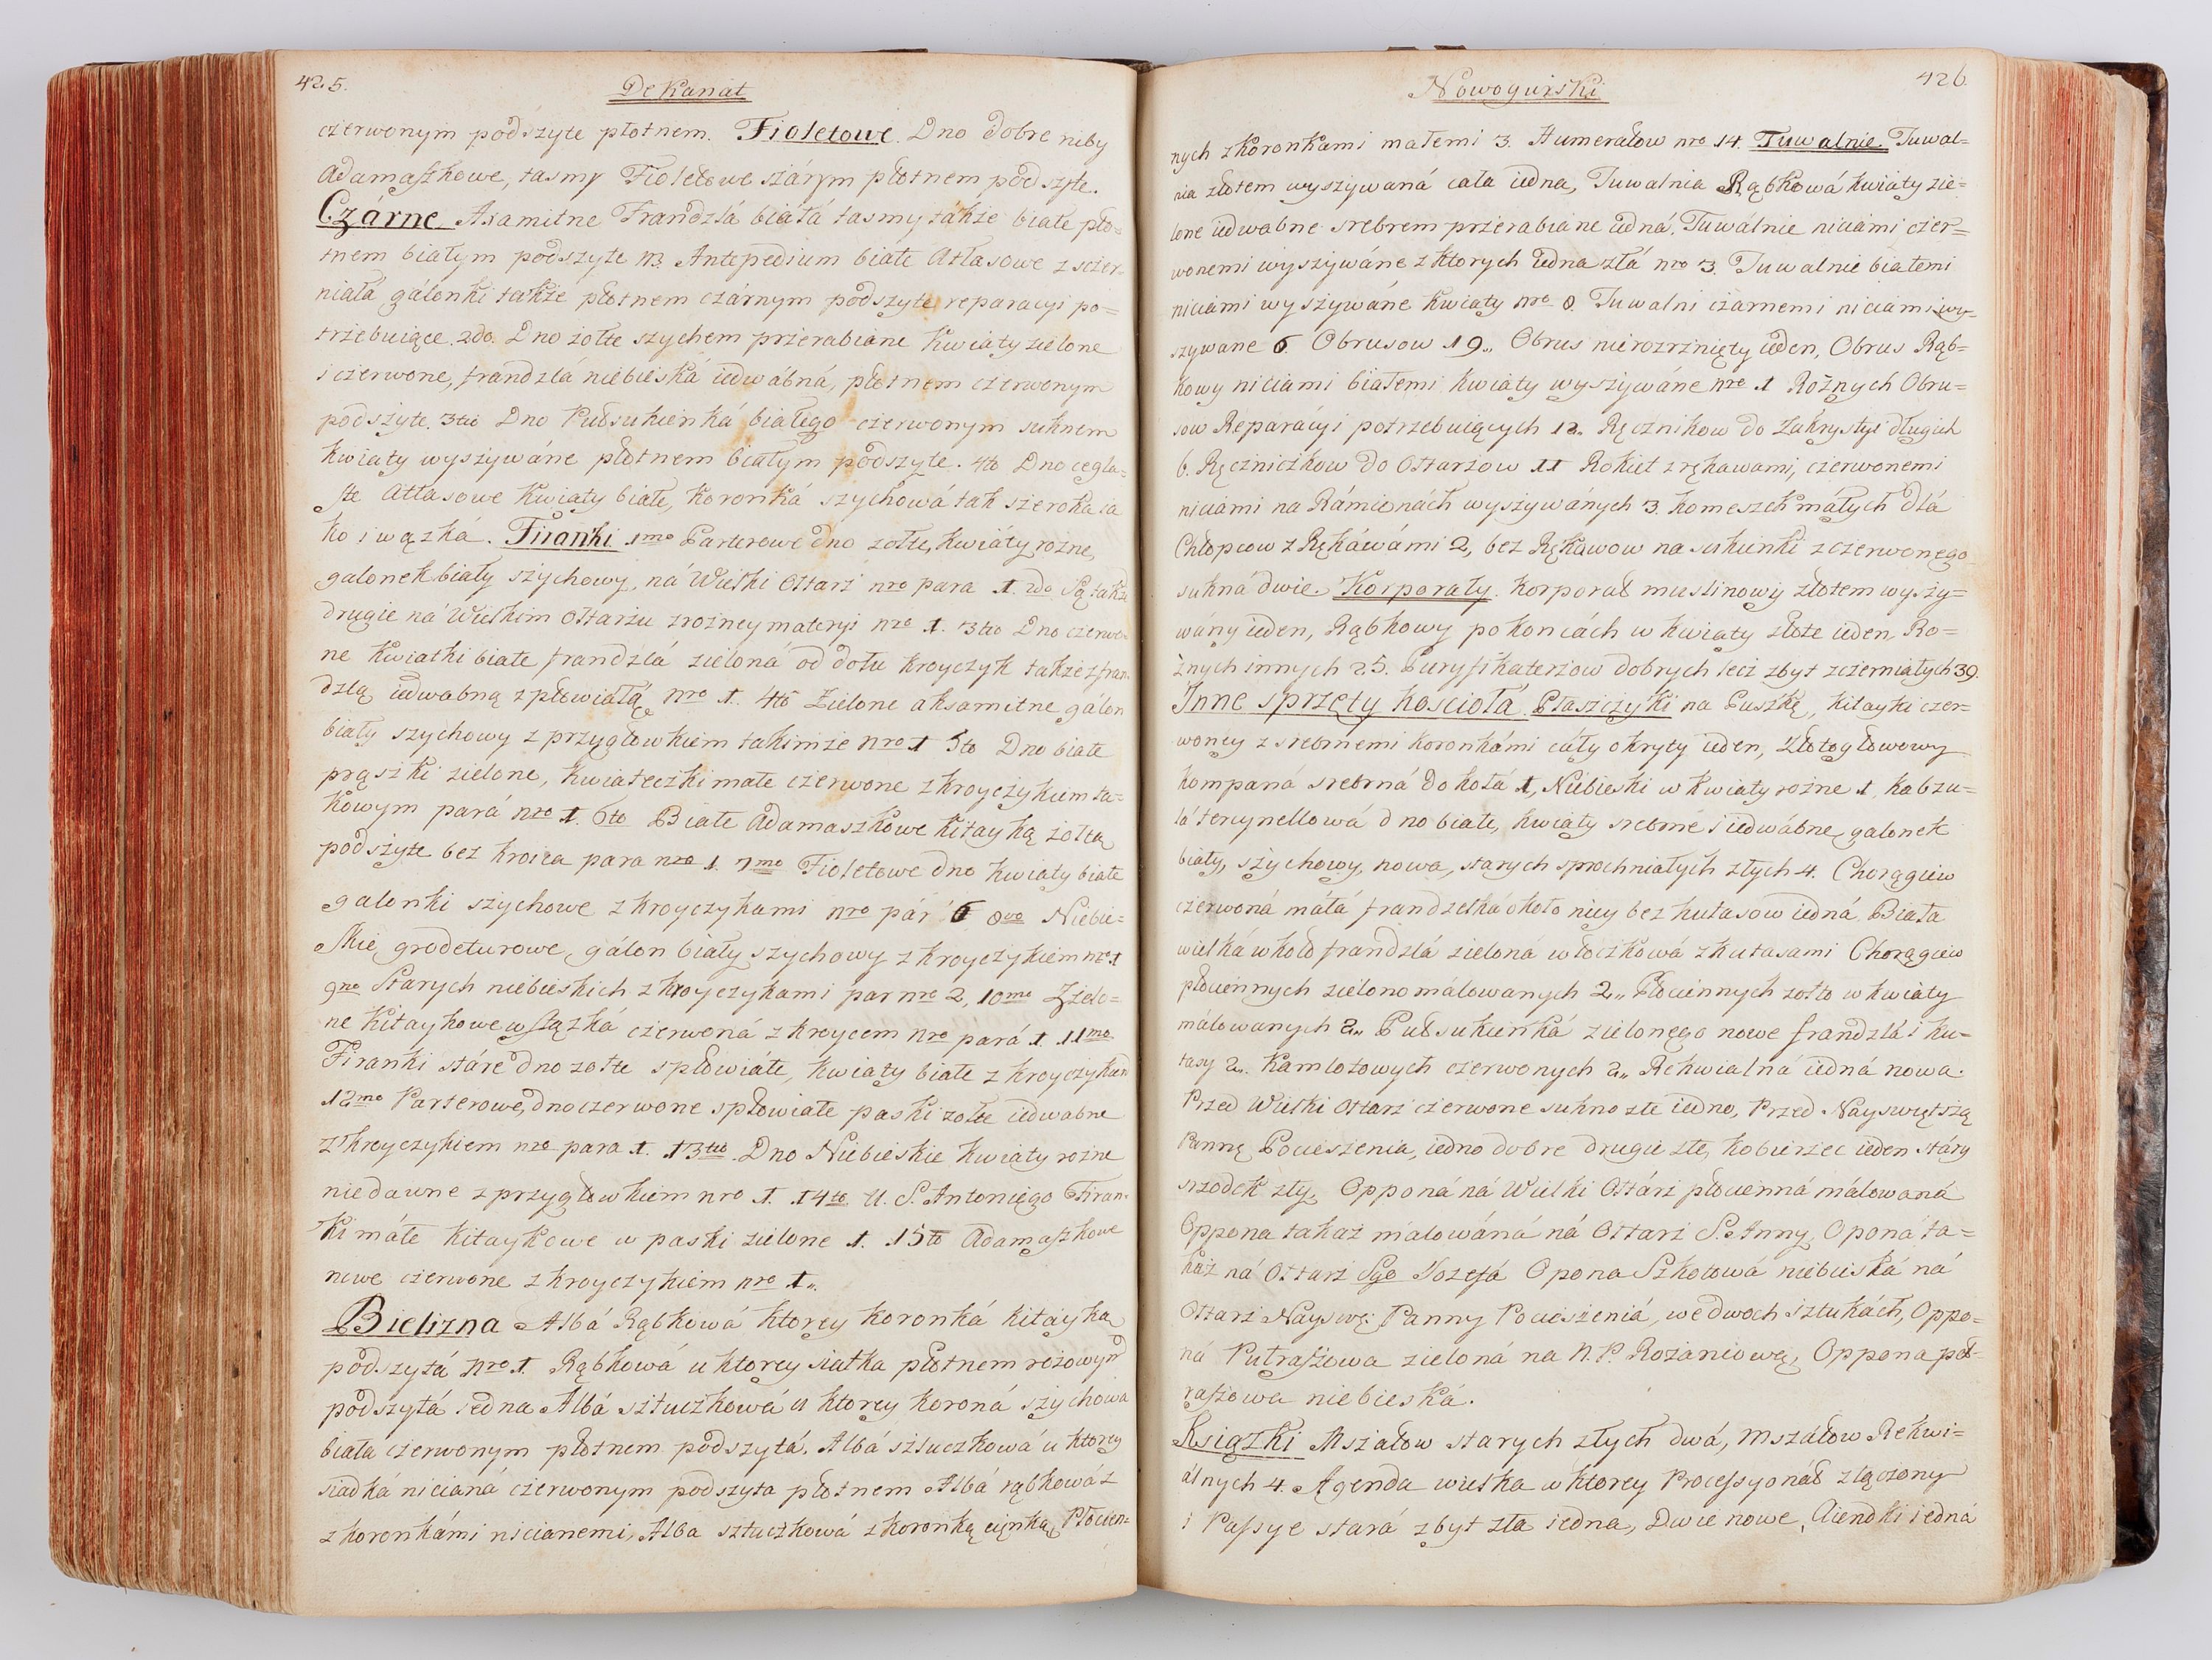 425.
Dekanat
czerwonym podszyte płotnem. Fioletowe. Dno dobre niby
Adamaszkowe, tasmy Fioletowe szárym płotnem podszyte.
Czárne Axamitne Frandzlá biáłá tasmy tákże białe pło-
tnem białym podszyte n3. Antepedium białe Atłasowe zsczer-
niałá gálonki także płotnem czárnym podszyte reparacyi po=
trzebuiące. 2do. Dno żołte szychem przerabiane kwiaty zielone
i czerwone, frandzlá niebieská iedwábná, płotnem czerwonym
podszyte. 3tio Dno Pułsukienká białego czerwonym suknem
kwiaty wyszywáne płotnem białym podszyte. 4to Dno cegla-
ste Atłasowe kwiaty białe, koronká szychowá tak szeroka ia
ko i wązká. Firanki 1mo Parterowe dno żołte, kwiáty rożne,
galonek biały szychowy, ná Wielki Ołtarz nro para 1. 2do Są także
drugie ná Wielkim Ołtarzu z rożney materyi nro 1. 3tio Dno czerwo-
ne kwiatki białe frandzlá zieloná od dołu kroyczyk także z fran
dzlą iedwabną zpłowiałą nro 1. 4to Zielone aksamitne gálon
biały szychowy z przygłowkiem takimże nro 1 5to Dno białe
prązki zielone, kwiateczki małe czerwone z kroyczykiem ta=
kowym pará nro 1. 6to Białe Adamaszkowe kitayką żołtą
podszyte bez kroica para nro 1. 7mo Fioletowe dno kwiaty białe
galonki szychowe z kroyczykami nro pár 6 8vo Niebie=
skie grodeturowe, gálon biały szychowy z kroyczykiem nro 1
9no Starych niebieskich z kroyczykami par nro 2, 10mo Zielo=
ne kitaykowe wstązká czerwoná z kroycem nro pará 1. 11mo
Firanki stáre dno żołte spłowiáłe, kwiaty białe z kroyczykiem
12mo Parterowe, dno czerwone spłowiałe paski żołte iedwabne
z kroyczykiem nro para 1. 13tio Dno Niebieskie kwiaty rożne
niedawne z przygłowkiem nro 1. 14to U. S. Antoniego Firan-
ki máłe kitaykowe w paski zielone 1. 15to Adamaszkowe
nowe czerwone z kroyczykiem nro 1„
Bielizna Albá Rąbkowá ktorey koronká kitayką
podszytá nro 1. Rąbkowá u ktorey siatka płotnem rożowym
podszytá iedna Albá sztuczkowá u ktorey koroná szychowa
biała czerwonym płotnem podszytá. Albá sztuczkowá u ktorey
siadká niciáná czerwonym podszyta płotnem Albá rąbkowá z
z koronkámi nicianemi, Alba sztuczkowá z koronką cięnką Płócien=
Nowogurski
426.
nych z koronkami małemi 3. Humerałow nro 14. Tuwalnie. Tuwal=
nia złotem wyszywaná cała iedna, Tuwalnia Rąbkowá kwiaty zie=
lone iedwabne srebrem przerabiane iedná. Tuwálnie niciámi czer=
wonemi wyszywáne z ktorych iedna złá nro 3. Tuwalnie białemi
niciámi wyszywáne kwiaty nro 8. Tuwalni czarnemi niciami wy=
szywane 6. Obrusow 19„ Obrus nierozrznięty ieden, Obrus Rąb=
kowy niciami białemi kwiaty wyszywáne nro 1 Rożnych Obru=
sow Reparácyi potrzebuiących 12„ Ręcznikow do Zakrystyi długich
6. Ręczniczkow do Ołtarzow 11 Rokiet z rękawami, czerwonemi
niciámi na Rámionách wyszywánych 3. komeszek máłych dlá
Chłopcow z Rękáwámi 2, bez Rękawow na sukienki z czerwonego
sukná dwie. Korporały. Korporał muslinowy złotem wyszy=
wány ieden, Rąbkowy po końcách w kwiaty złote ieden Ro=
żnych innych 25. Puryfikaterzow dobrych lecz zbyt zczerniałych 39.
Inne sprzęty kosciołá Płaszczyki na Puszkę, kitayki czer=
woney z srebrnemi koronkámi cáły okryty ieden, Złotogłowowy
kompaná srebrná do kołá 1, Niebieski w kwiaty rożne 1. kabzu=
lá tercynellowá dno białe, kwiaty srebrné i iedwábne galonek
biały, szychowy, nowa, starych sprochniałych złych 4. Chorągiew
czerwoná máłá frandzelká około niey bez kutasow iedná. Biała
wielká wkoło frandzlá zieloná włoczkowá z kutasami Chorągiew
płociennych zielono málowanych 2„ Płóciennych żołto w kwiaty
málowanych 2„ Pułsukienká zielonego nowe frandzlá i ku=
tasy 2„ Kamlotowych czerwonych 2„ Rekwialná iedná nowa.
Przed Wielki Ołtarz czerwone sukno złe iedno, Przed Nayswiętszą
Pannę Pocieszenia, iedno dobre drugie złe, kobierzec ieden stáry
srzodek zły. Opponá ná Wielki Ołtárz płócienná málowaná
Oppona takaż málowáná ná Ołtarz S. Anny, Oponá ta=
káż ná Ołtarz Sgo Jozefá Opona Szkotowá niebieská ná
Ołtarz Nayswę: Panny Pocieszeniá, we dwoch sztukách, Oppo=
ná Putraszowa zieloná na N. P. Rożańcową, Oppona pół=
raszowa niebieská.
Ksiązki Mszałow starych złych dwá, mszáłow Rekwi=
álnych 4. Agenda wielka w ktorey Processyonáł złączony
i Passye stará zbyt zła iedna, Dwie nowe, Aiendki iedná